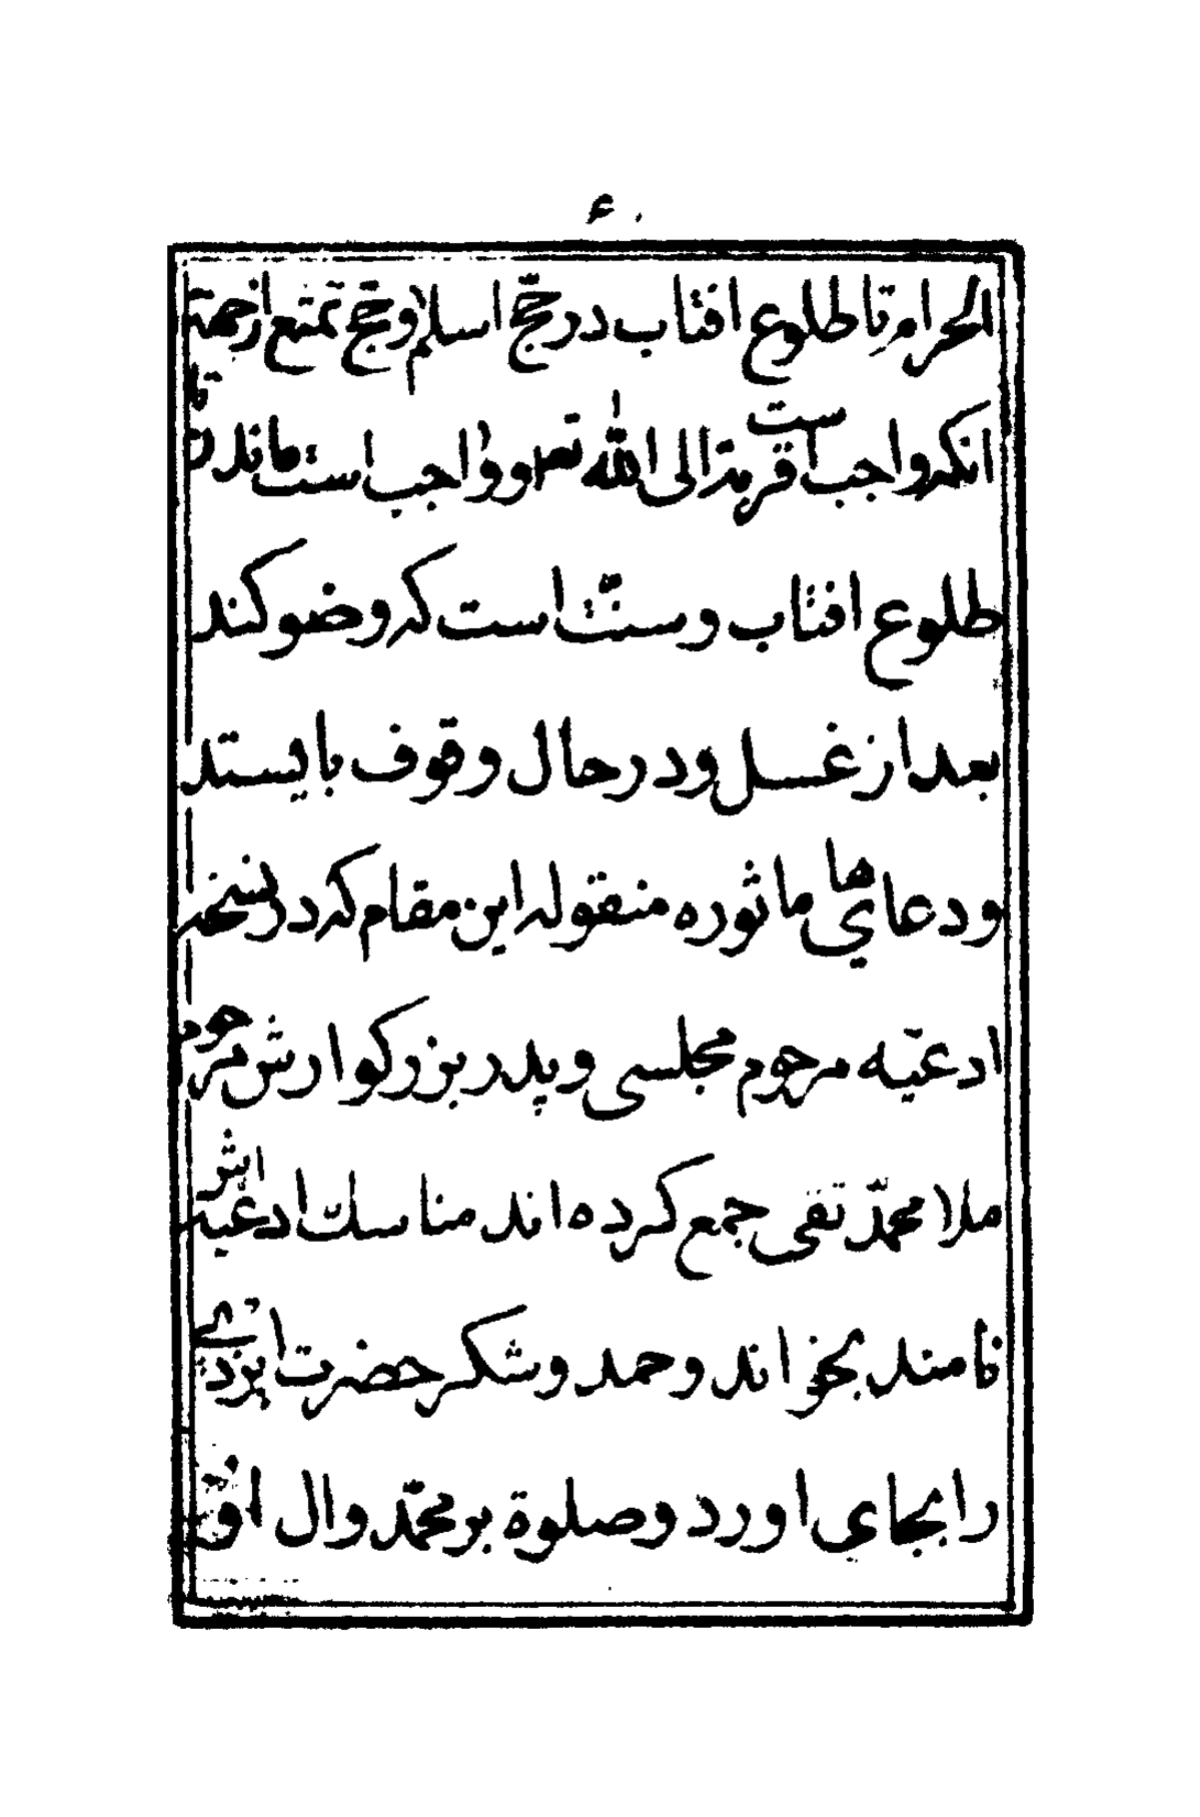 ۶۰
الحرام تا طلوع افتاب در حجّ اسلام و حجّ تمتع از جهة
انکه واجب است قربة الی الله تعا و واجب است ماندن تا
طلوع افتاب و سنّت است که وضو کند
بعد از غسل و در حال وقوف بایستد
و دعاهای ماثوره منقوله این مقام که در نسخه
ادعیّه مرحوم مجلسی و پدر بزرکوارش مرحوم
ملا محمّد تقی جمع کرده اند مناسک ادعیّه اش
نامند بخواند و حمد و شکر حضرت ایزدی
را بجای اورد و صلوة بر محمّد و ال او